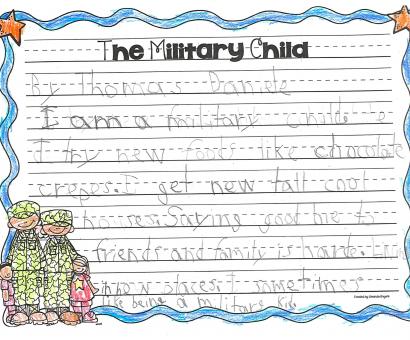 The Military Child
By Thomas Daniele
I am a military child.
I try new foods like chocolate
crepes. I get new tall cool
houses. Saying good bie to
friends and family is harde.
I sometimes
like being a military kid.
Created by Amanda Rogers